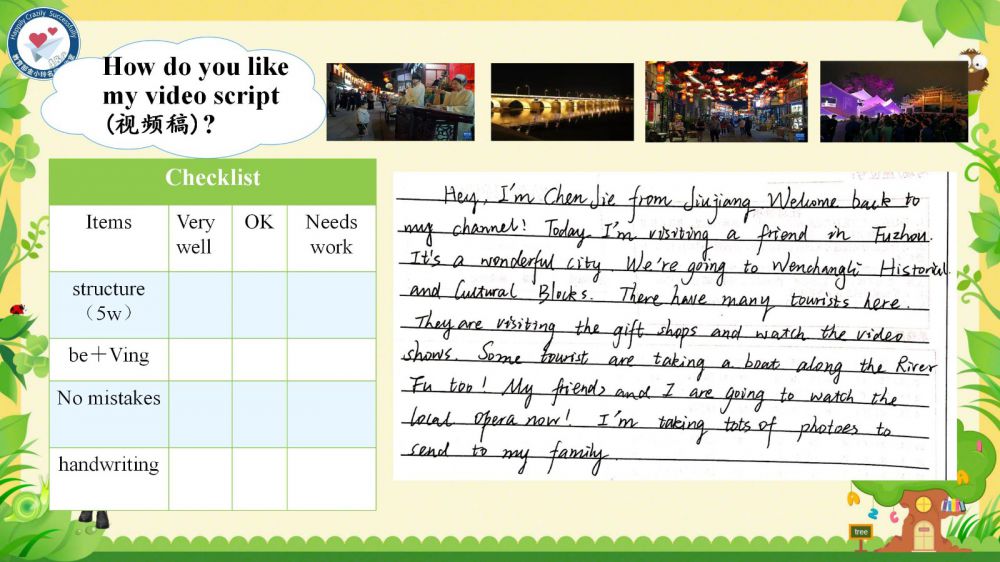 Happily Crazily Successfully
How do you like
my video script
(视频稿)?
Checklist
Items Very well OK Needs work
structure
(5w)
be+Ving
No mistakes
handwriting
Hey, I'm Chen Jie from Jiujiang Welcome back to
my channel! Today I'm visiting a friend in Fuzhou.
It's a wonderful city. We're going to Wenchangli Historical
and Cultural Blocks. There have many tourists here.
They are visiting the gift shops and watch the video
shows. Some tourist are taking a boat along the River
Fu too! My friends and I are going to watch the
local opera now! I'm taking tots of photoes to
send to my family.
tree